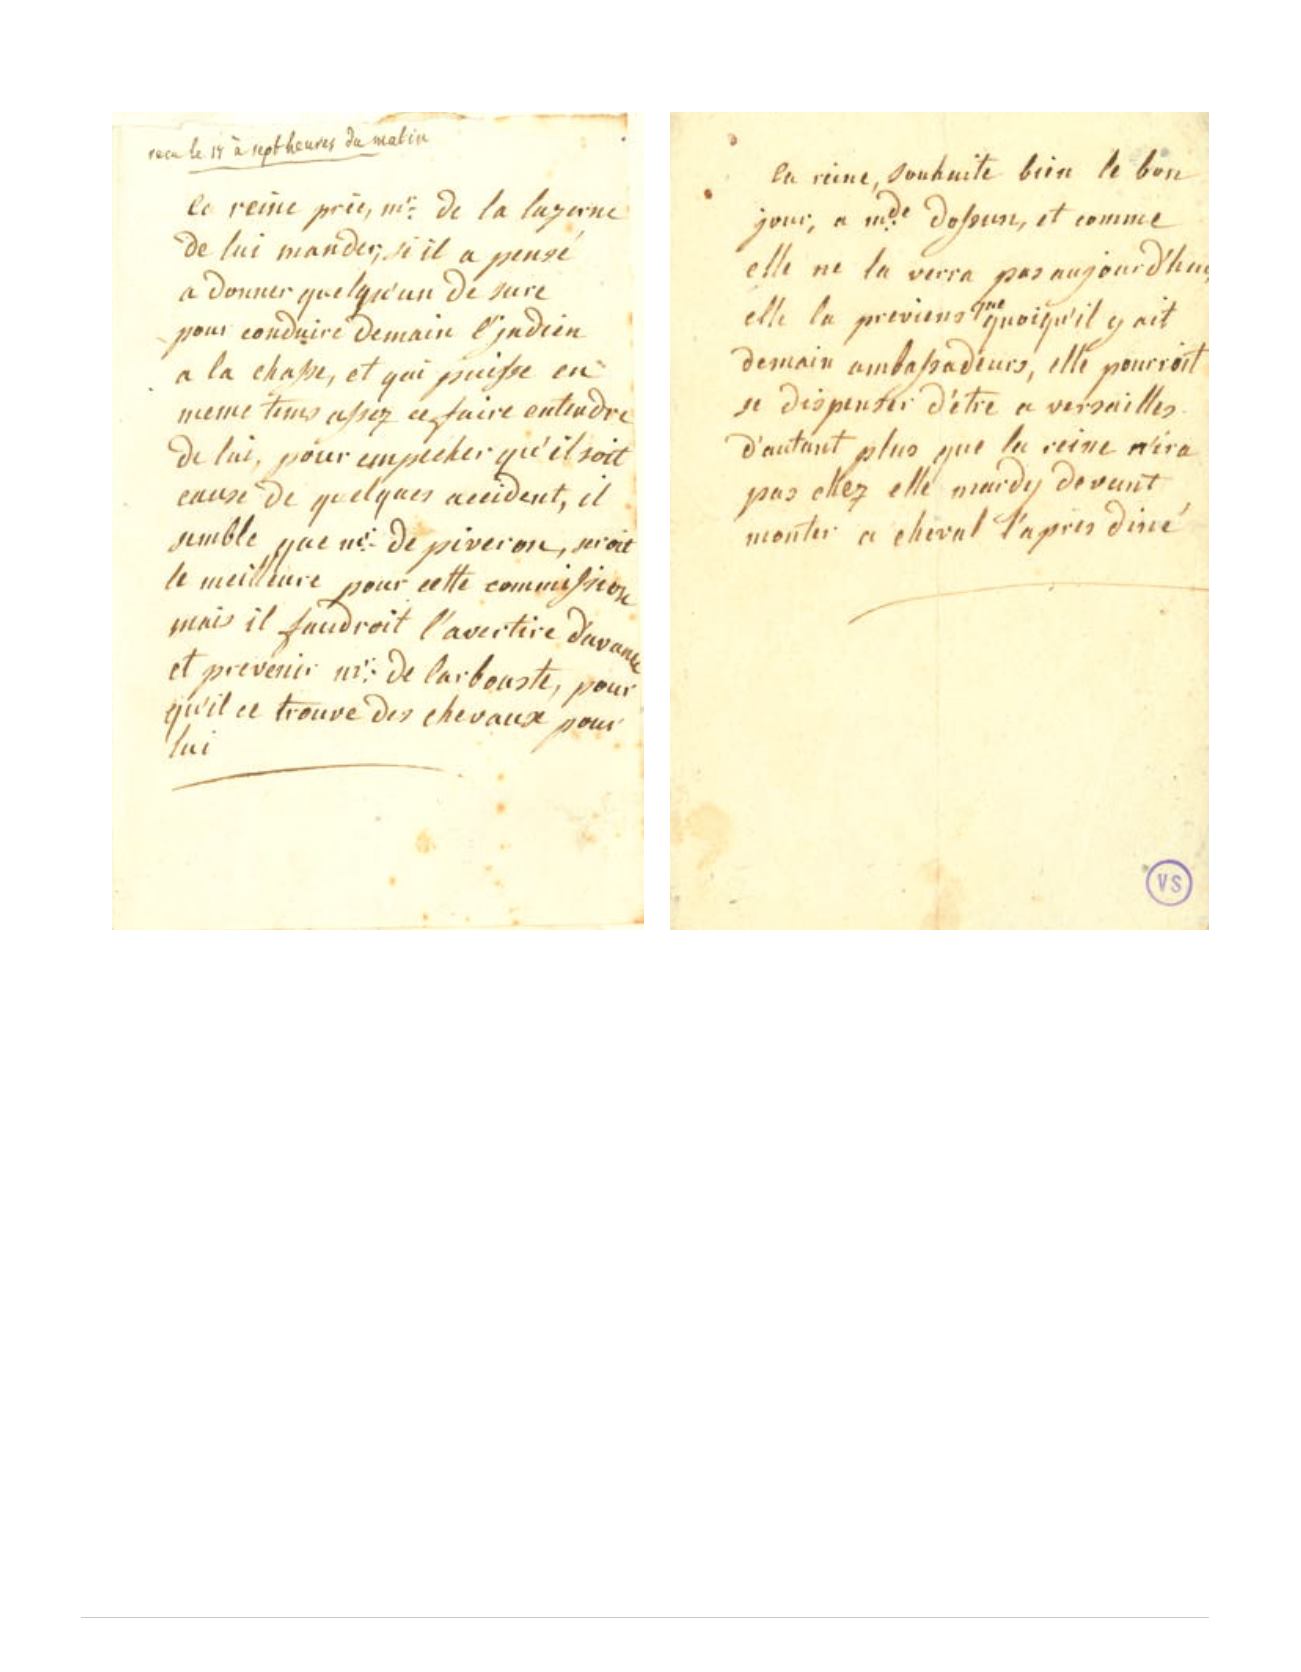 recu le 14 à sept heures du matin
la reine prie, mr: de la luzerne
de lui mander, si il a pensé
a donner quelqu'un de sure
pour conduire demain l'jndien
a la chasse, et qui puisse en
meme tems assez ce faire entendre
de lui, pour empecher qu'il soit
cause de quelques accident, il
semble que mr: de piveron, seroit
le meilleure pour cette commission
mais il faudroit l'avertire d'avance
et prevenir mr: de larbouste, pour
qu'il ce trouve des chevaux pour
lui
la reine, souhaite bien le bon
jour, a mde: dossun, et comme
elle ne la verra pas aujourd'hui
elle la previens que quoiqu'il y ait
demain ambassadeurs, elle pourroit
se dispenser d'étre a versailles
d'autant plus que la reine n'ira
pas chez elle mardy devant
monter a cheval l'apres diné
VS